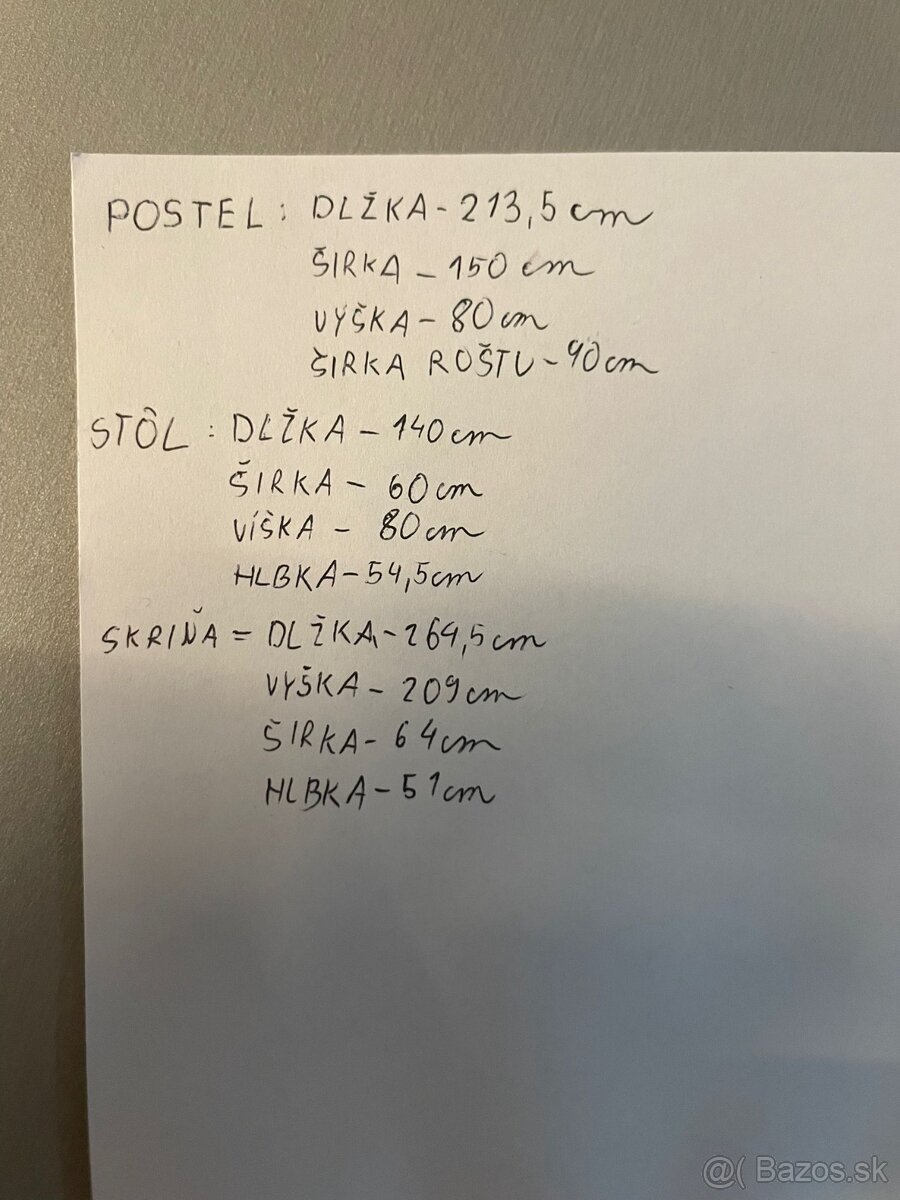 POSTEL: DLŽKA - 213,5 cm
ŠIRKA - 150 cm
VÝŠKA - 80 cm
ŠIRKA ROŠTU - 90 cm
STÔL : DLŽKA - 140 cm
ŠIRKA - 60 cm
VÍŠKA - 80 cm
HLBKA - 54,5 cm
SKRIŇA = DLŽKA - 264,5 cm
VYŠKA - 209 cm
ŠIRKA - 64 cm
HLBKA - 51 cm
@( Bazos.sk